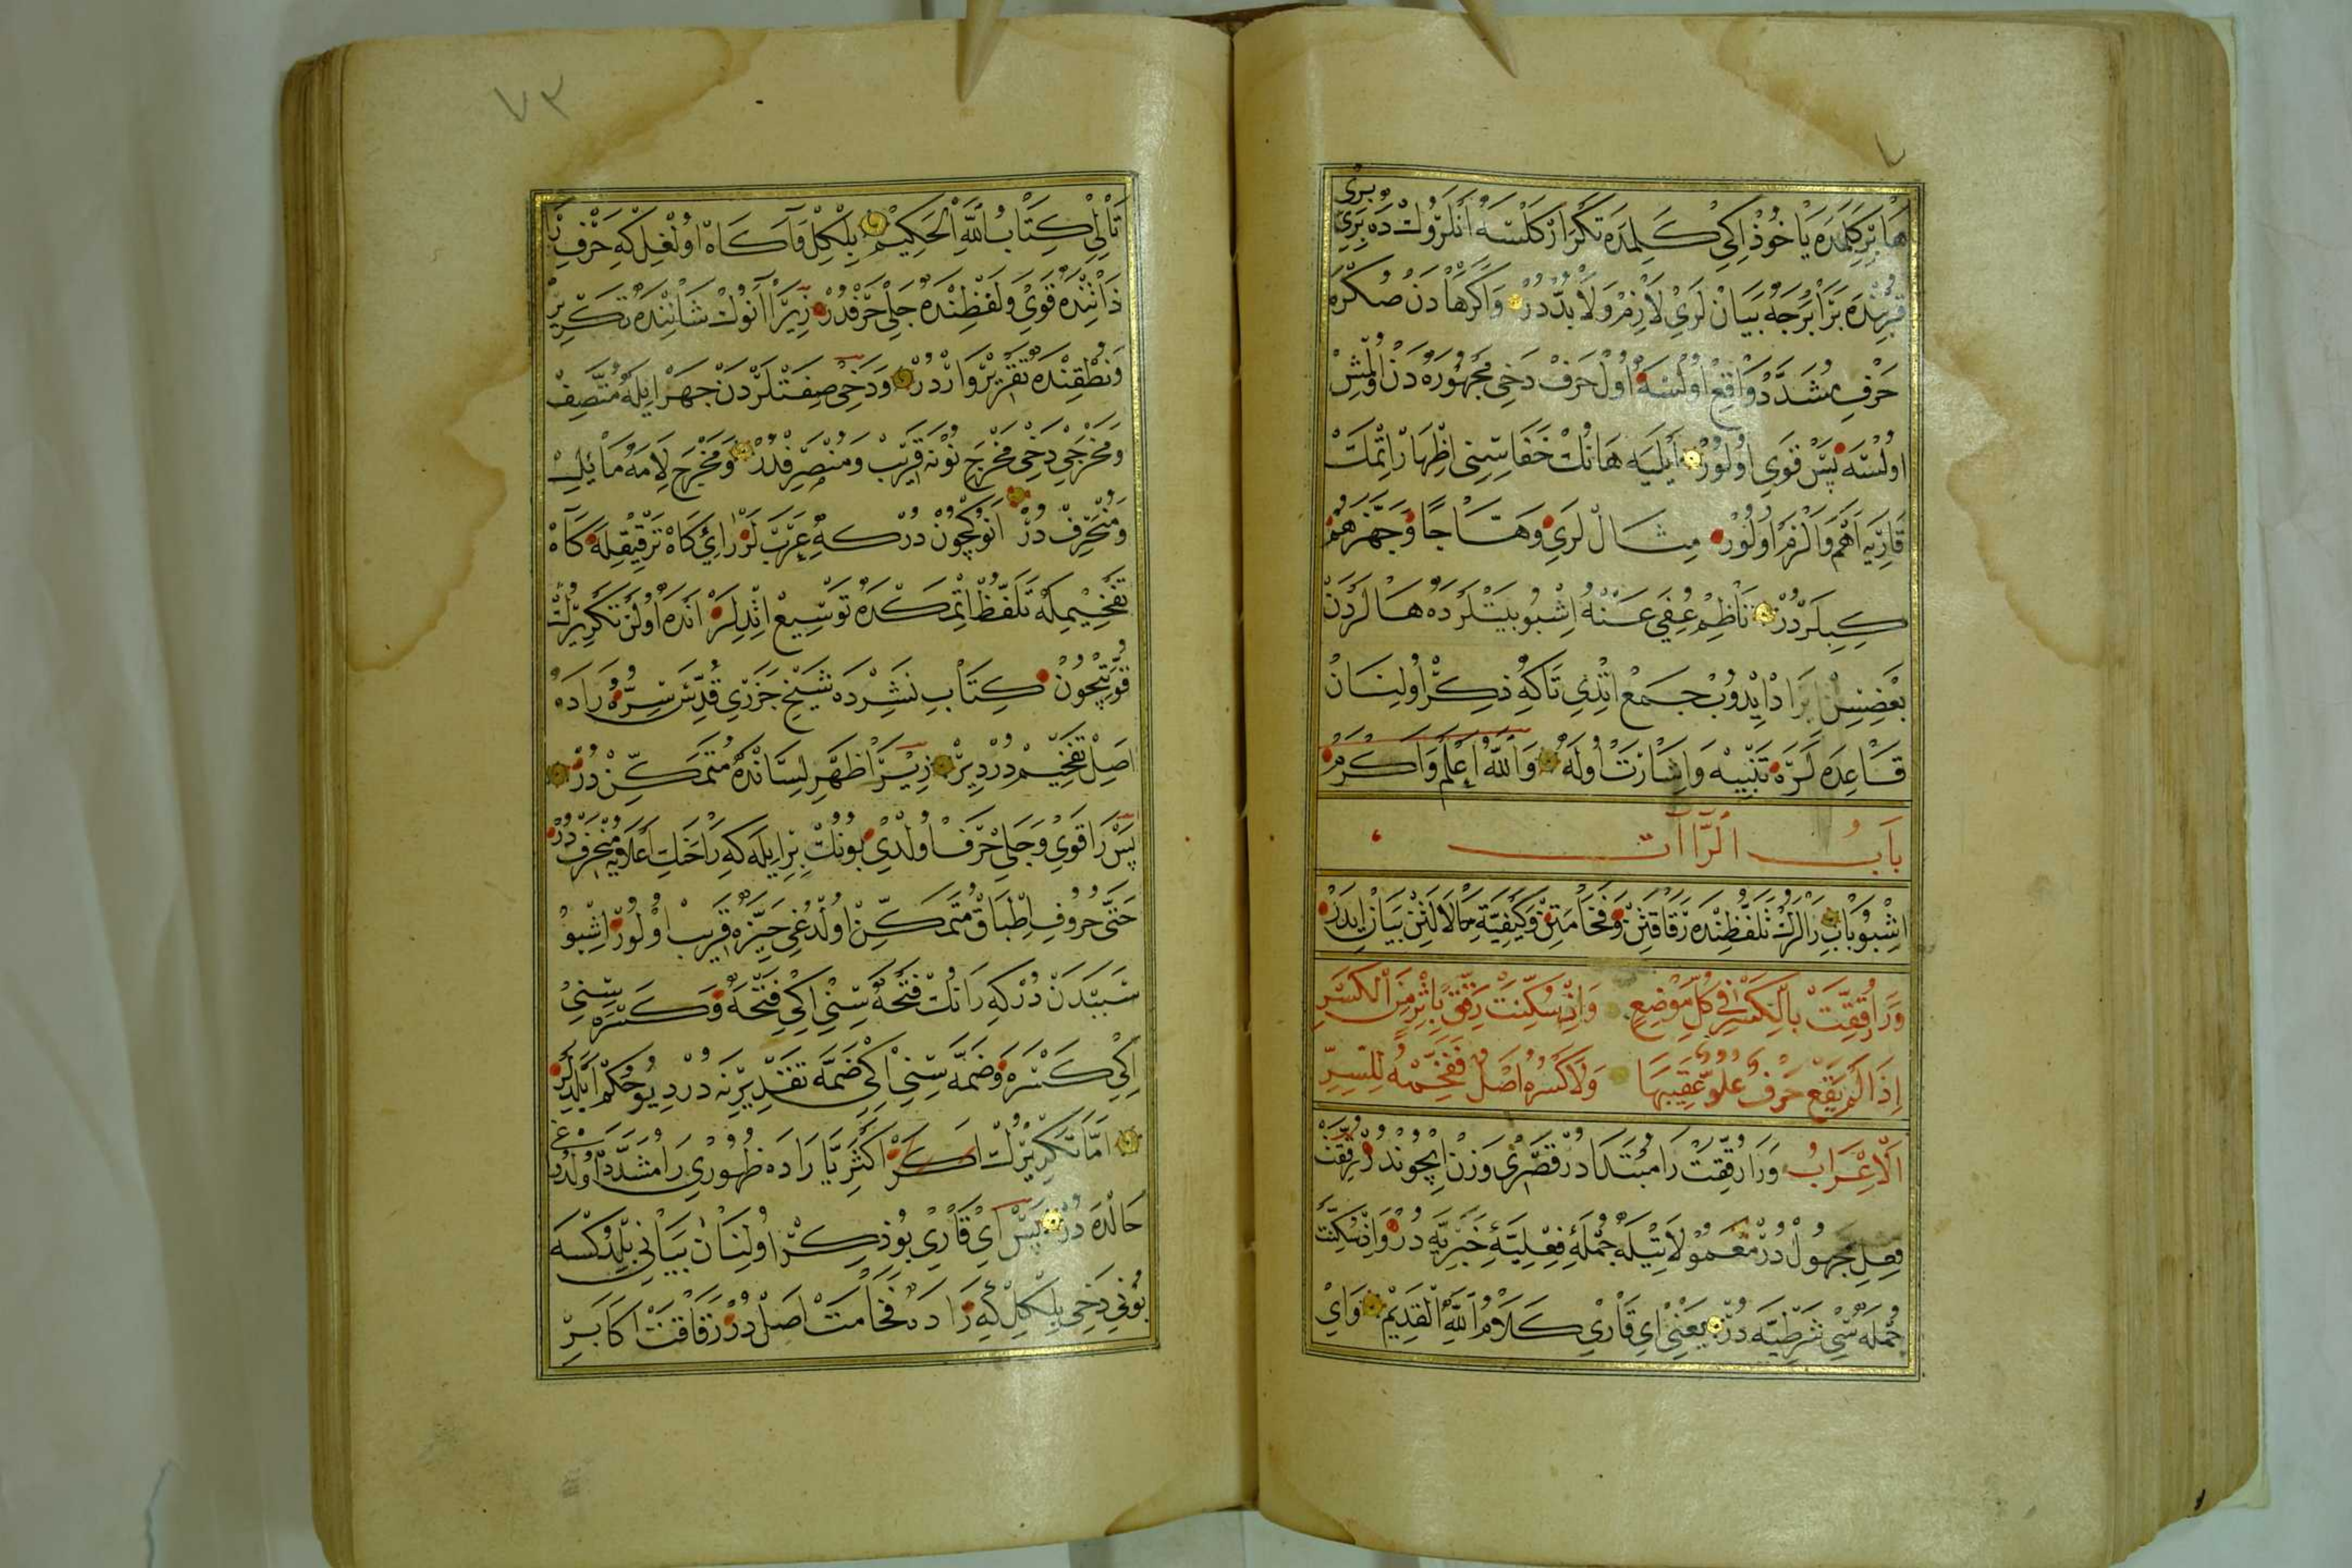 هَا بِرْ كَلِمَدَه يَاخُوذْ اِكِي كَلِمَدَه تَكْرَارْ كَلْسَه اَنْلَرُوكْ دَه بِرِي بِرِي
قُرْبِنْدَه بَرَابَرْجَه بَيَانْ لَرِي لَازِمْ وَلَابُدَّدُرْ وَاكَرْ هَادَنْ صُكْرَه
حَرْفِ مُشَدَّدْ وَاقِعْ اُولْسَه اُولْ حَرْفْ دَخِي مَجْهُورَه دَنْ اُولْمِشْ
اولْسَه پَسْ قَوِي اُولُورْ اَيْلَيَه هَانُكْ خَفَاسِنِي اِظْهَارْ اِتْمَكْ
قَارِيَه اَهَمّ وَاَلْزَمْ اُولُورْ مِثَالْ لَرِي وَهَّاجًا وَجَهَّزَهُمْ
كِبِيلَرْدُرْ نَاظِمْ عُفِيَ عَنْهُ اِشْبُو بَيْتْلَرْدَه هَالَرْدَنْ
بَعْضِيسِنْ اِيرَادْ اِيدُوبْ جَمْعْ اِتْدِي تَاكِه ذِكْرْ اُولِنَانْ
قَاعِدَه لَرَه تَنْبِيهْ وَاِشَارَتْ اُولَه وَاللّٰهُ اَعْلَمُ وَاَكْرَمُ
بَابُ الرَّاآتْ
اِشْبُو بَابْ رَالَرُكْ تَلَفُّظِنْدَه رَقَاقَتِنْ وَفَخَامَتِنْ وَكَيْفِيَّةِ حَالَاتِنْ بَيَانْ اِيدَرْ
وَرَا رُقِّقَتْ بِالْكَسْرِ فِي كُلِّ مَوْضِعٍ وَاِنْ سُكِّنَتْ رَقِّقْ بِاِثْرٍ مِنَ الْكَسْرِ
اِذَا لَمْ يَقَعْ حَرْفُ عُلُوٍّ عَقِيبَهَا وَلَا كَسْرُهُ اَصْلٌ فَفَخِّمْهُ لِلسِّرِّ
اَلْاِعْرَابُ وَرَا رُقِّقَتْ رَا مُبْتَدَادُرْ قَصْرِي وَزْنْ اِيچُونْدُرْ رُقِّقَتْ
فِعْلِ مَجْهُولْ دُرْ مَعْمُولَاتِيلَه جُمْلَهٔ فِعْلِيَّهٔ خَبَرِيَّه دُرْ وَاِنْ سُكِّنَتْ
جُمْلَه سِي شَرْطِيَّه دُرْ يَعْنِي اَيْ قَارِئِ كَلَامُ اللّٰهِ الْقَدِيمْ وَاَيْ
٧٣
تَالِئِ كِتَابُ اللّٰهِ الْحَكِيمْ بِلْكِلْ وَآكَاهْ اُولْغِلْ كِه حَرْفِ رَا
ذَاتِنْدَه قَوِي وَلَفْظِنْدَه جَلِي حَرْفْدُرْ زِيرَا اَنُوكْ شَانِنْدَه تَكْرِيرْ
وَنُطْقِنْدَه تَقْرِيرْ وَارْدُرْ وَدَخِي صِفَتْلَرْدَنْ جَهْرْ اِيلَه مُتَّصِفْ
وَمَخْرَجِي دَخِي مَخْرَجِ نُونَه قَرِيبْ وَمُنْصَرِفْدُرْ وَمَخْرَجِ لَامَه مَائِلْ
وَمُنْحَرِفْ دُرْ اَنُوكِچُونْ دُرْكِه عَرَبْ لَرْ رَائِي كَاهْ تَرْقِيقِلَه كَاهْ
تَفْخِيمِلَه تَلَفُّظْ اِتْمَكْدَه تَوْسِيعْ اِتْدِلَرْ اَنْدَه اُولَنْ تَكْرِيرُكْ
قُوَّتِيچُونْ كِتَابِ نَشِرْدَه شَيْخِ جَزَرِي قُدِّسَ سِرُّهُ رَادَه
اَصِلْ تَفْخِيمْ دُرْ دِيرْ زِيرَا ظَهْرِ لِسَانْدَه مُتَمَكِّنْ دُرْ
پَسْ رَا قَوِي وَجَلِي حَرْفْ اُولْدِي بُونُكْ بِرْ اِيلَه كِه رَا حَنَكِ اَعْلَايَه مُنْحَرِفْ دُرْ
حَتَّى حُرُوفِ اِطْبَاقْ مُتَمَكِّنْ اُولْدُغِي حَيِّزَه قَرِيبْ اُولُورْ اِشْبُو
سَبَبْدَنْ دُرْكِه رَانُكْ فَتْحَه سِنِي اِكِي فَتْحَه وَكَسْرَه سِنِي
اِكِي كَسْرَه وَضَمَّه سِنِي اِكِي ضَمَّه تَقْدِيرِنَه دُرْ دِيُو حُكْمْ اَيْلَدِيلَرْ
اَمَّا تَكْرِيرُكْ اَكَرْ اَكْثَرِيَّا رَادَه ظُهُورِي رَا مُشَدَّدْ اُولْدُغِي
حَالْدَه دُرْ پَسْ اَيْ قَارِي بُو ذِكْرْ اُولِنَانْ بَيَانِي بِلْدِكْسَه
بُونِي دَخِي بِلْكِلْ كِه رَادَه فَخَامَتْ اَصِلْ دُرْ رَقَاقَتْ اَكَا بَرِ